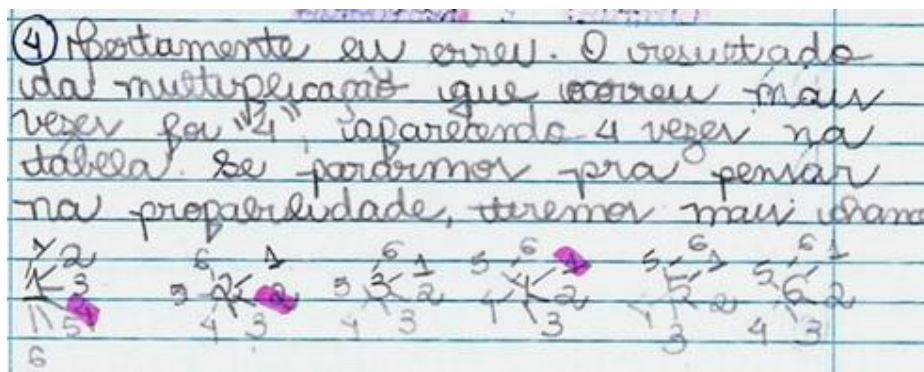 ④ Abertamente eu errei. O resultado
da multiplicação que ocorreu mais
vezes foi "4", aparecendo 4 vezes na
tabela. Se parármos pra pensar
na propabilidade, teremos mais chanc
1 2 6 1 6 1 5 6 1 5 6 1 5 6 1
1 3 5 2 2 5 3 2 4 2 5 2 6 2
5 4 3 4 3 4 3 4 3 4 3
6